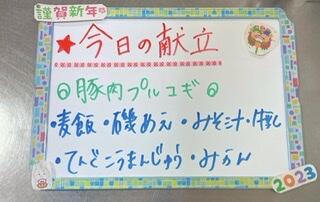 謹賀新年
★今日の献立
◎豚肉プルコギ◎
・麦飯・磯あえ・みそ汁・
・てんどこうまんじゅう・みかん
2023